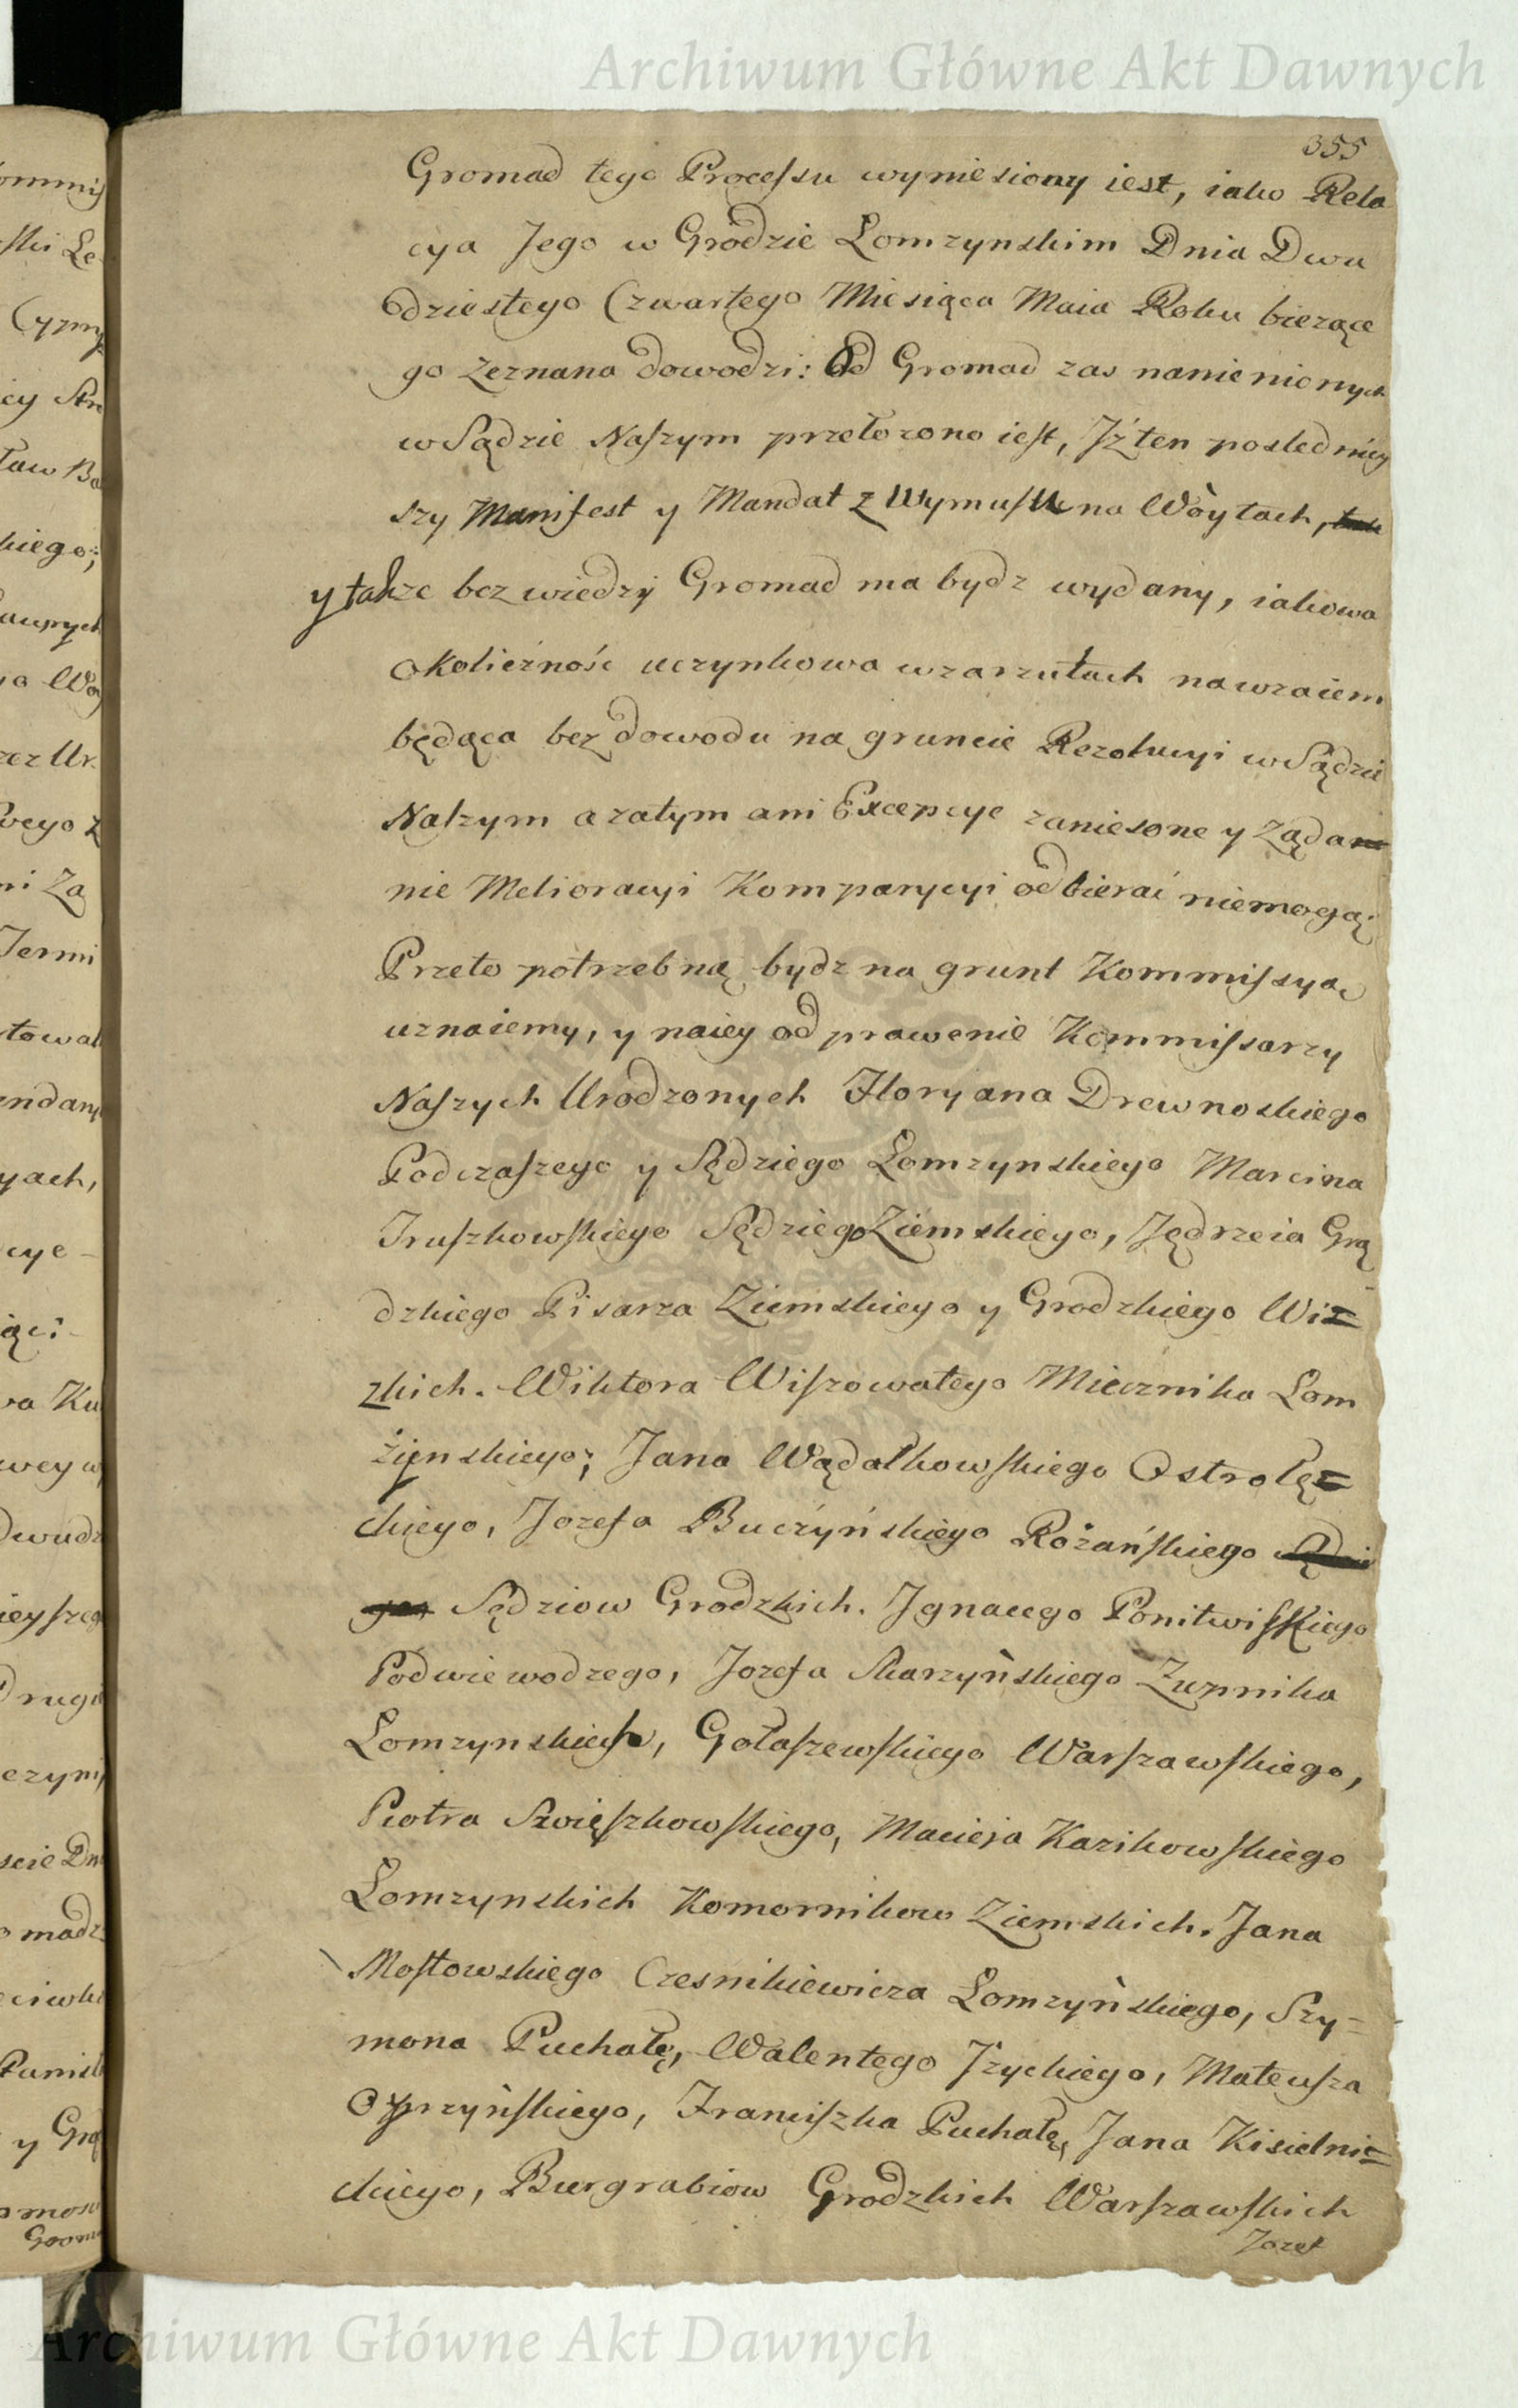 Archiwum Główne Akt Dawnych
355
Gromad tego Processu wyniesiony iest, iako Rela
cya Jego w Grodzie Łomzynskim Dnia Dwu
dziestego Czwartego Miesiąca Maia Roku bieżące
go zeznana dowodzi: Od Gromad zas namienionych
w Sądzie Naszym przełożono iest, Iż ten posledniey
szy Manifest y Mandat z Wymusu na Wóytach,
y także bez wiedzy Gromad ma bydz wydany, iakowa
okoliczność uczynkowa w zarzutach nawzaiem
będąca bez dowodu na gruncie Rezolucyi w Sądzie
Naszym a zatym ani Excepcye zaniesone y Ząda
nie Melioracyi Komparycyi odbierać niemogą;
Przeto potrzebną bydz na grunt Kommissyą
uznaiemy, y na iey odprawenie Kommissarzy
Naszych Urodzonych Floryana Drewnoskiego
Podczaszego y Sędziego Łomzynskiego Marcina
Truszkowskiego Sędziego Ziemskiego, Jędrzeia Grą
dzkiego Pisarza Ziemskiego y Grodzkiego Wiz=
zkich. Wiktora Wiszowatego Miecznika Łom
żynskiego; Jana Wądałkowskiego Ostrołę=
ckiego, Jozefa Buczyńskiego Różańskiego
Sędziow Grodzkich. Ignacego Ponitwiskiego
Podwiewodzego, Jozefa Skarzyńskiego Zupnika
Łomzynskich, Gołaszewskiego Warszawskiego,
Piotra Szwięszkowskiego, Macieja Karikowskiego
Łomzynskich Komornikow Ziemskich. Jana
Mostowskiego Czesnikiewicza Łomzyńskiego, Szy=
mona Puchałę, Walentego Jżyckiego, Mateusza
Franciszka Puchałę, Jana Kisielnic=
ckiego, Burgrabiow Grodzkich Warszawskich
Jozef
Archiwum Główne Akt Dawnych